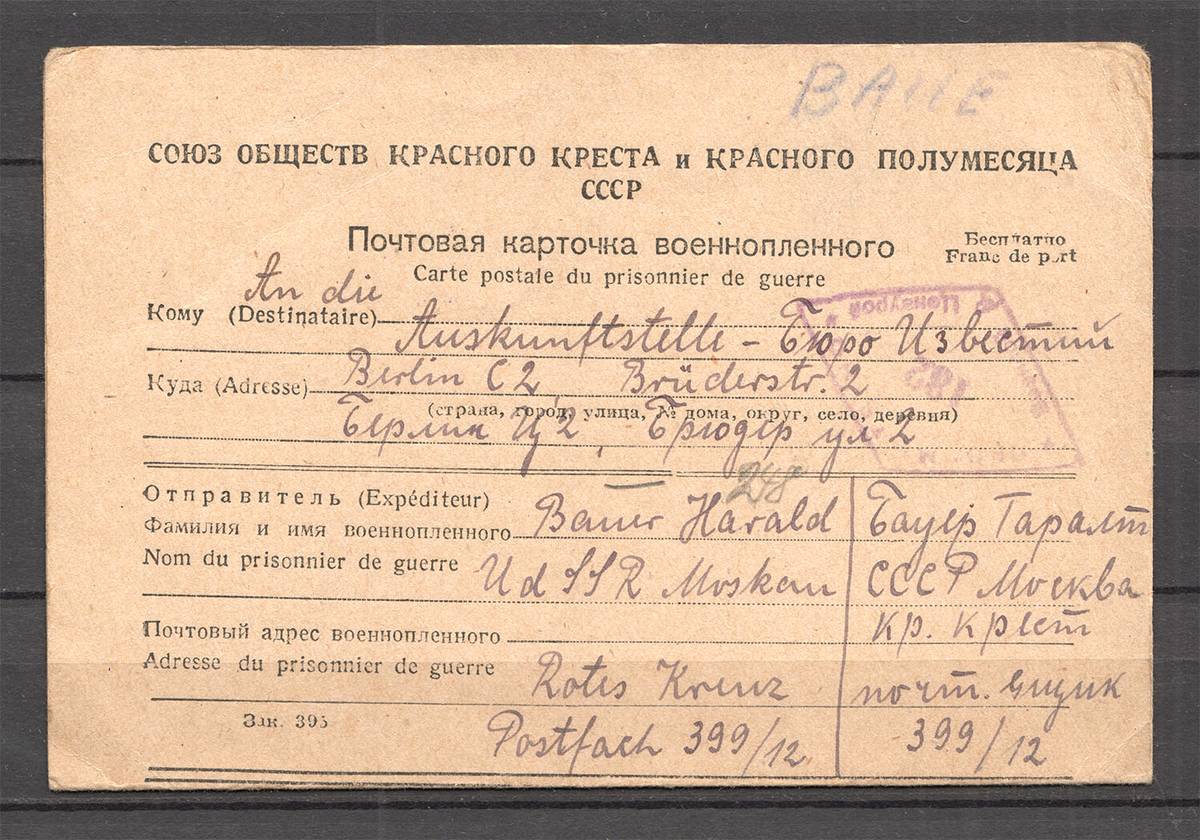 ВАПЕ
СОЮЗ ОБЩЕСТВ КРАСНОГО КРЕСТА и КРАСНОГО ПОЛУМЕСЯЦА
СССР
Почтовая карточка военнопленного
Бесплатно
Carte postale du prisonnier de guerre
Franc de port
An die
Кому (Destinataire) Auskunftstelle - Бюро Известий
Куда (Adresse) Berlin C2 Brüderstr. 2
(страна, город, улица, № дома, округ, село, деревня)
Берлин Ц2, Брюдер ул 2
248
Отправитель (Expéditeur)
Фамилия и имя военнопленного Bauer Harald Бауер Гаралт
Nom du prisonnier de guerre UdSSR Moskau СССР Москва
Почтовый адрес военнопленного кр. крест
Adresse du prisonnier de guerre Rotes Kreuz почт. ящик
Зак. 395 Postfach 399/12 399/12